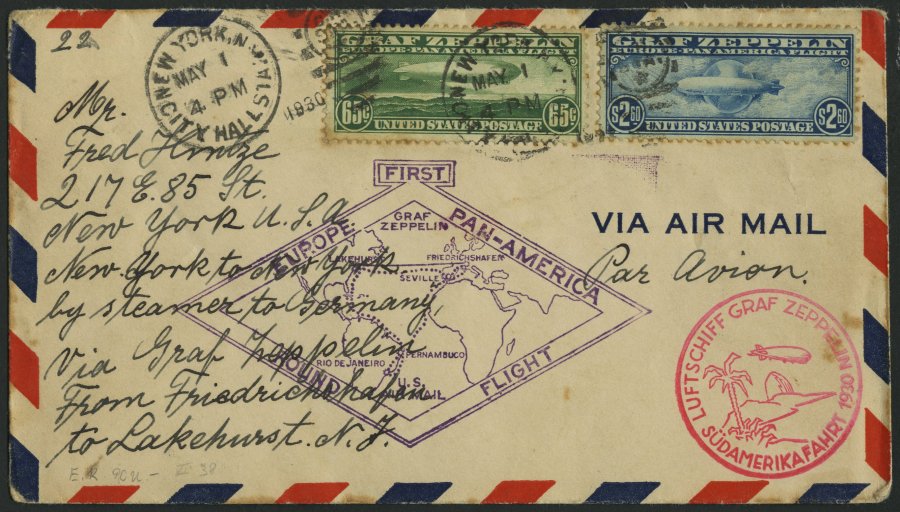 22
NEW YORK, N.Y.
MAY 1
4 PM
CITY HALL STA.
1930
GRAF ZEPPELIN
EUROPE-PAN AMERICA FLIGHT
65¢ 65¢
UNITED STATES POSTAGE
NEW YORK
MAY 1
4 PM
GRAF ZEPPELIN
EUROPE-PAN AMERICA FLIGHT
$2.60 $2.60
UNITED STATES POSTAGE
Mr.
Fred Hintze
217 E. 85 St.
New York U.S.A.
New York to New York
by steamer to Germany,
Via Graf Zeppelin
From Friedrichshafen
to Lakehurst. N. J.
FIRST
EUROPE PAN-AMERICA
ROUND FLIGHT
GRAF
ZEPPELIN
LAKEHURST FRIEDRICHSHAFEN
SEVILLE
PERNAMBUCO
RIO DE JANEIRO
U.S.
AIR MAIL
VIA AIR MAIL
Par Avion.
LUFTSCHIFF GRAF ZEPPELIN
SÜDAMERIKAFAHRT 1930